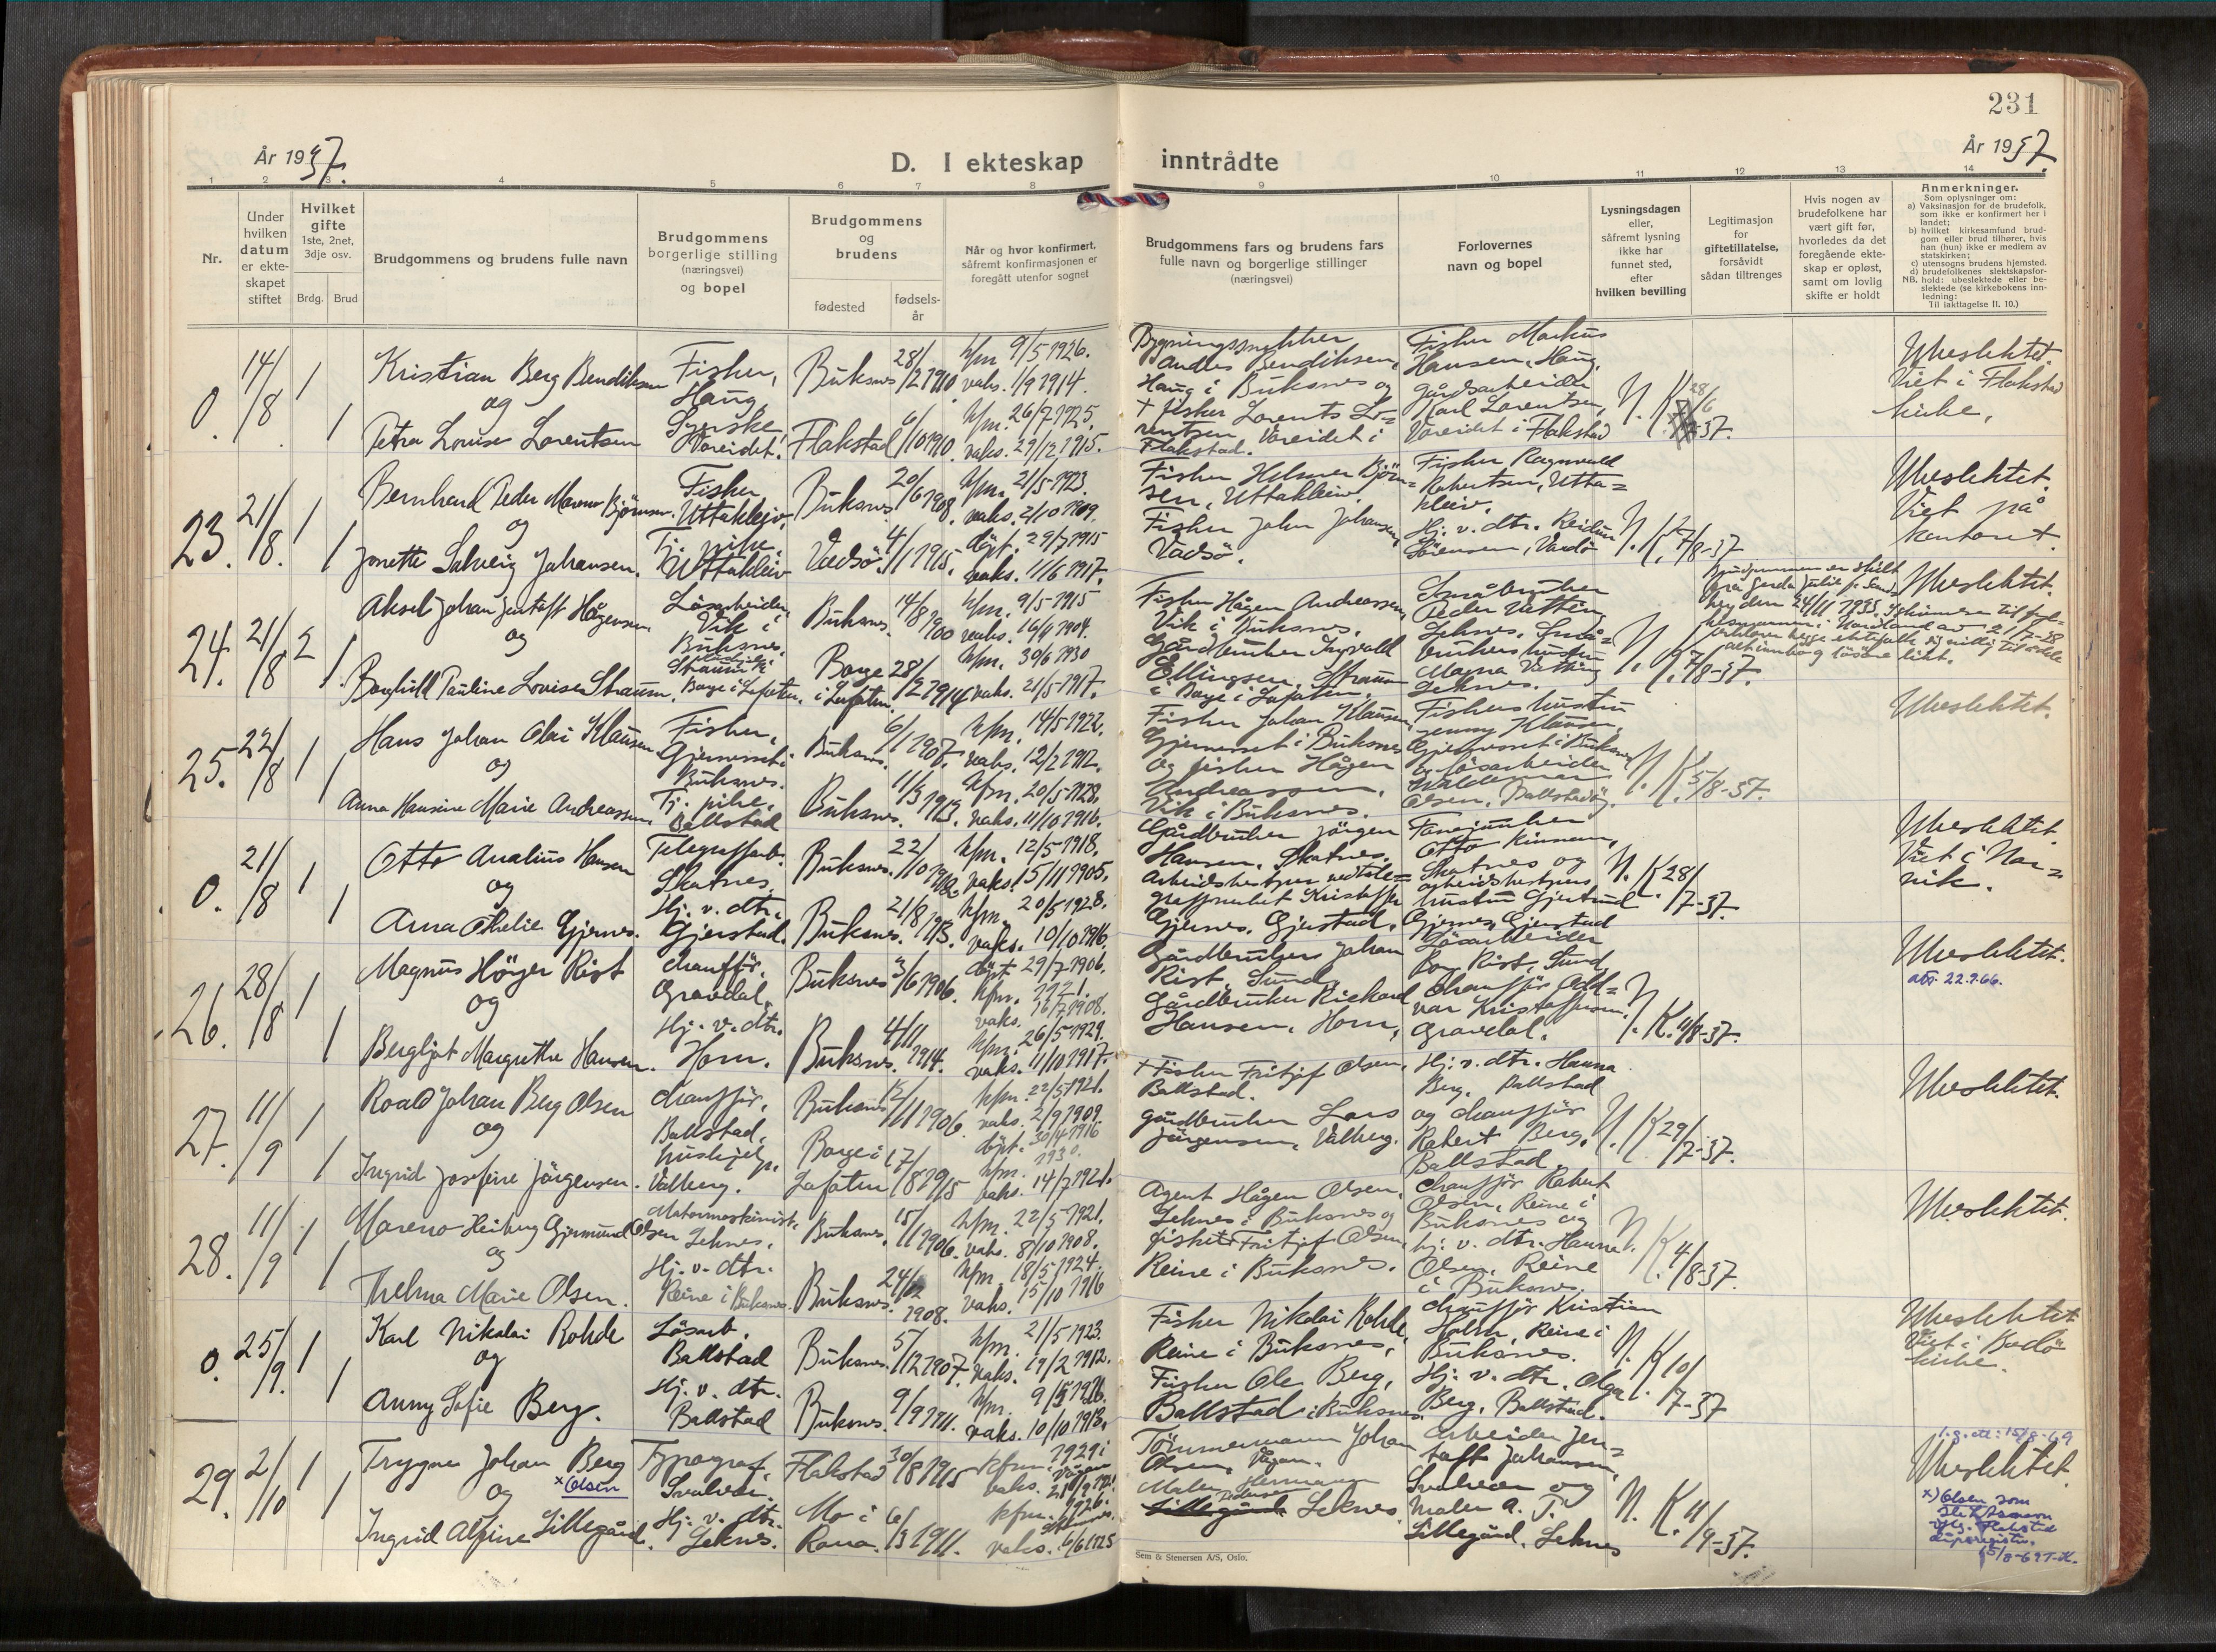 231
År 1937.
D. I ekteskap inntrådte
År 1937
1 2 3 4 5 6 7 8 9 10 11 12 13 14
Nr.
Under hvilken datum er ekteskapet stiftet
Hvilket gifte 1ste, 2net, 3dje osv.
Brdg. Brud
Brudgommens og brudens fulle navn
Brudgommens borgerlige stilling (næringsvei) og bopel
Brudgommens og brudens
fødested
fødsels-år
Når og hvor konfirmert, såfremt konfirmasjonen er foregått utenfor sognet
Brudgommens fars og brudens fars fulle navn og borgerlige stillinger (næringsvei)
Forlovernes navn og bopel
Lysningsdagen eller, såfremt lysning ikke har funnet sted, efter hvilken bevilling
Legitimasjon for giftetillatelse, forsåvidt sådan tiltrenges
Hvis nogen av brudefolkene har vært gift før, hvorledes da det foregående ekteskap er opløst, samt om lovlig skifte er holdt
Anmerkninger.
Som oplysninger om:
a) Vaksinasjon for de brudefolk, som ikke er konfirmert her i landet;
b) hvilket kirkesamfund brudgom eller brud tilhører, hvis han (hun) ikke er medlem av statskirken;
c) utensogns brudens hjemsted.
d) brudefolkenes slektskapsforhold: ubeslektede eller beslektede (se kirkebokens innledning:
NB.
Til iakttagelse II. 10.)
0. 14/8 1 Kristian Berg Bendiksen Fisker, Haug, Buksnes 28/2 1910. kfn. 9/5 1926. vaks. 1/9 1914.
og
1 Petra Louise Lorentsen Syerske Vareidet. Flakstad 6/10 1910. kfn. 26/7 1925. vaks. 29/12 1915.
Bygningssnekker Anders Bendiksen, Haug i Buksnes og
+ fisker Lorents Lorentsen, Vareidet i Flakstad.
Fisker Markus Hansen, Haug, gårdsarbeider Karl Lorentsen, Vareidet i Flakstad
N. K. 28/6 37.
Ubeslektet. Viet i Flakstad kirke.
23. 21/8. 1 Bernhard Peder Mareno Bjørnsen. Fisker Uttakleiv. Buksnes. 20/6 1908. kfn. 21/5 1923. vaks. 2/10 1909.
og
1 Jonette Solveig Johansen. Tj. pike. Uttakleiv Vadsø. 4/1 1915. døpt. 29/7 1915 vaks. 11/6 1917.
Fisker Helmer Bjørnsen, Uttakleiv.
Fisker John Johansen, Vadsø.
Fisker Ragnvald Robertsen, Uttakleiv.
Hj. v. dtr. Reidun Sørensen, Vardø
N. K. 7/8-37
Ubeslektet. Viet på kontoret.
24. 21/8 2 Aksel Johan Justaft Hågensen. Løsarbeider, Vik i Buksnes. Buksnes. 14/8 1900 kfn. 9/5 1915 vaks. 16/9 1904.
og
1. Borghild Pauline Lovise Straum. Straum i Borge i Lofoten. Borge i Lofoten. 28/2 1914 kfn. 30/6 1930 vaks. 21/5 1917.
Fisker Hågen Andreassen, Vik i Buksnes.
Gårdbruker Ingvald Ellingsen, Straum i Borge i Lofoten.
Småbruker Peder Vatting, Leknes. Småbrukerhustru Magna Vatting Leknes.
N. K. 7/8-37.
Brudgommen er skilt fra Gerda Julie
Ubeslektet.
25. 22/8 1 Hans Johan Olai Klausen Fisker, Gjermesset i Buksnes. Buksnes. 6/1 1907. kfn. 14/5 1922. vaks. 12/2 1912.
og
1 Anna Hansine Marie Andreassen. Tj. pike, Ballstad Buksnes. 11/3 1913. kfn. 20/5 1928. vaks. 11/10 1916.
Fisker Johan Klausen, Gjermesset i Buksnes og fisker Hågen Andreassen, Vik i Buksnes.
Fiskerhustru Jenny Klausen, Gjermesset i Buksnes og løsarbeider Waldemar Olsen, Ballstadøy.
N. K. 5/8-37.
Ubeslektet.
0. 21/8 1 Otto Analius Hansen Telegrafarb. Skotnes. Buksnes. 22/10 kfn. 12/5 1918. vaks. 15/11 1905.
og
1 Anna Othelie Gjernes. Hj. v. dtr. Gjerstad. Buksnes. 21/8 1913. kfn. 20/5 1928. vaks. 10/10 1916.
Gårdbruker Jørgen Hansen, Skotnes.
Arbeidsbestyrer ved telegrafverket Kristoffer Gjernes, Gjerstad.
Fanejunker Otto Kinnem, Skotnes og arbeidsbestyrers hustru Gjertrud Gjernes, Gjerstad
N. K. 28/7-37.
Ubeslektet. Viet i Narvik.
26. 28/8 1 Magnus Høyer Rist chauffør, Gravdal. Buksnes 3/6 1906. døpt 29/7 1906. kfn. 1921. vaks. 16/7 1908.
og
1 Bergljot Margrethe Hansen. Hj. v. dtr. Horn. Buksnes. 4/11 1914. kfn. 26/5 1929. vaks. 11/10 1917.
Gårdbruker Johan Rist, Sund.
Gårdbruker Rickard Hansen, Horn,
Løsarbeider Roy Rist, Sund, chauffør Oddvar Kristoffersen. Gravdal.
N. K. 4/8-37.
Ubeslektet.
att. 22.9.66.
27. 11/9 1 Roald Johan Berg Olsen chauffør, Ballstad, Buksnes /11 1906. kfn. 22/5 1921. vaks. 2/9 1909.
og
1 Ingrid Josefine Jørgensen. hushjelp, Valberg. Borge i Lofoten 17/8 1915 døpt. 30/4 1916 kfn. 1930. vaks. 14/7 1921.
+ Fisker Fritjof Olsen, Ballstad.
Gårdbruker Lars Jørgensen, Valberg.
Hj. v. dtr. Hanna Berg, Ballstad og chauffør Robert Berg, Ballstad.
N. K. 29/7-37.
Ubeslektet.
28. 11/9 1 Mareno Heiberg Gjermund Olsen Motormaskinist. Leknes. Buksnes. 15/11 1906. kfn. 22/5 1921. vaks. 8/10 1908.
og
1 Thelma Marie Olsen. Hj. v. dtr. Reine i Buksnes. Buksnes. 24/12 1908. kfn. 18/5 1924. vaks. 15/10 1916
Agent Hågen Olsen, Leknes i Buksnes og fisker Fritjof Olsen, Reine i Buksnes.
chauffør Robert Olsen, Reine i Buksnes og hj. v. dtr. Hanna Olsen, Reine i Buksnes.
N. K. 4/8-37.
Ubeslektet.
0. 25/9. 1 Karl Nikolai Rohde Løsarb. Ballstad Buksnes. 5/12 1907. kfn. 21/5 1923. vaks. 19/2 1912.
og
1 Anny Sofie Berg. Hj. v. dtr. Ballstad Buksnes. 9/9 1911. kfn. 9/5 1926. vaks. 10/10 1913.
Fisker Nikolai Rohde, Reine i Buksnes,
Fisker Ole Berg, Ballstad i Buksnes.
chauffør Kristian Holm, Reine i Buksnes.
Hj. v. dtr. Olga Berg, Ballstad.
N. K. 10/7-37
Ubeslektet Viet i Bodø kirke.
29. 2/10 1 Trygve Johan Berg x Olsen Typograf, Svolvær. Flakstad 30/8 1915 kfn. 1929 i Vågan
og
1 Ingrid Alfine Lillegård. Hj. v. dtr. Leknes. Mo i Rana. 6/3 1911. kfn. 1926. vaks. 6/6 1925
Tømmermann Johan Olsen, Vågan.
Maler Hermann Pedersen Lillegård Leknes.
Arbeider Jentoft Johansen, Svolvær og maler A. P. Lillegård, Leknes
N. K. 4/9-37.
Ubeslektet
x) Olsen som slektsnavn iflg. Flakstad dåpsregister.
15/8-69 T.K.
Sem & Stenersen A/S, Oslo.